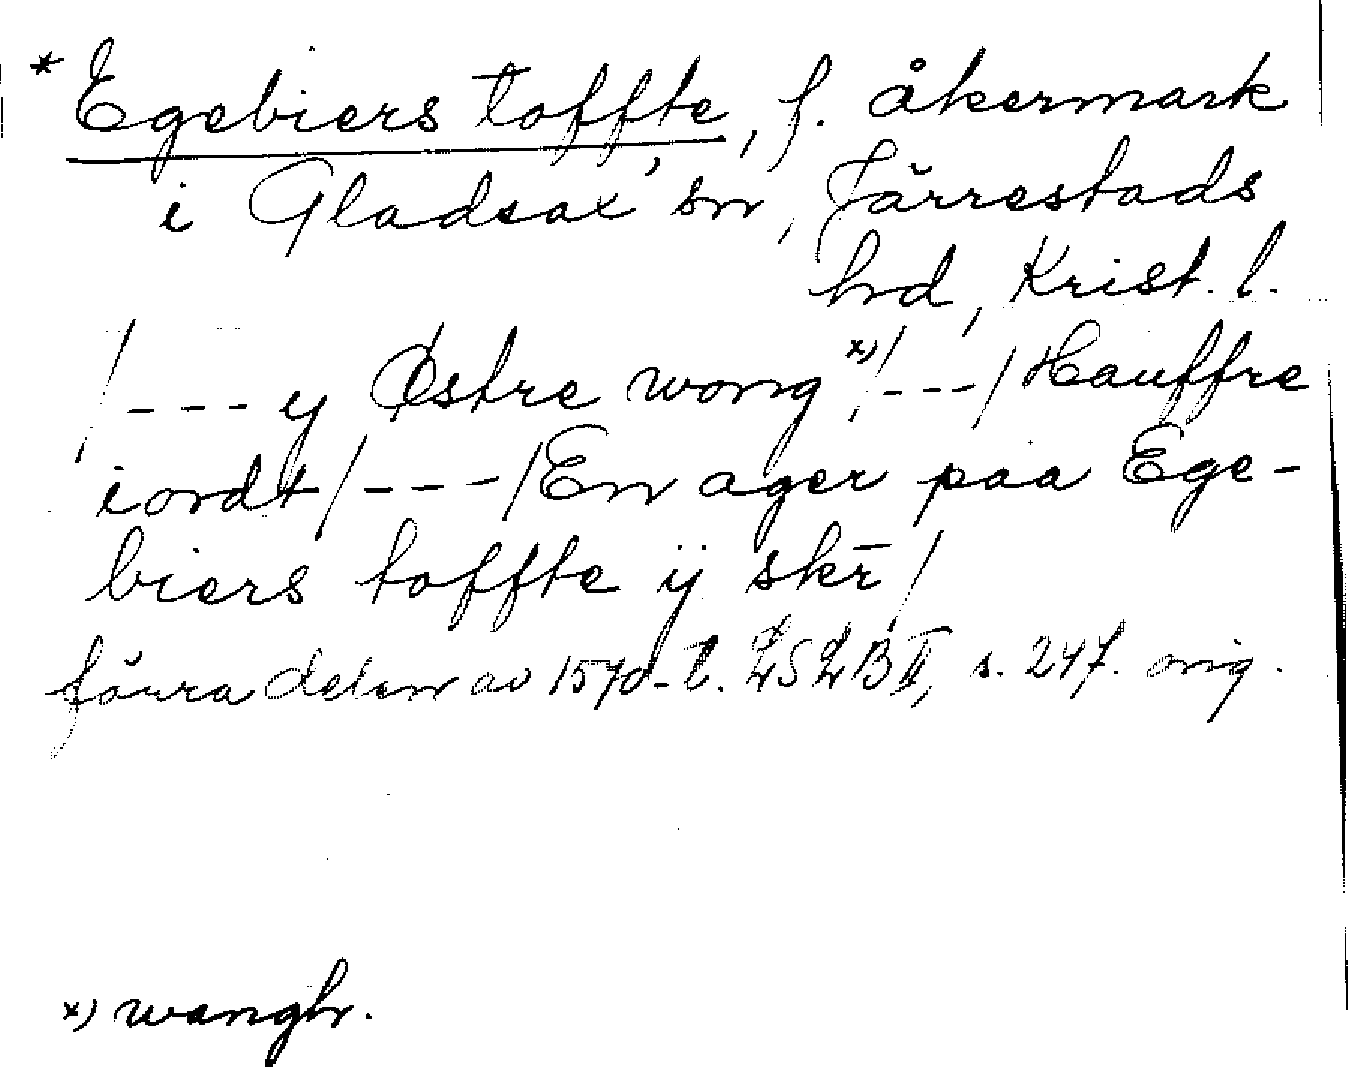 * Egebiers toffte, f. åkermark
i Gladsax' sn, Järrestads
hrd, Krist. l.
/---y Østre wong x)/---/Hauffre
iordt/---/En ager paa Ege-
biers toffte ÿ skr̄/
förra delen av 1570-t. LSLB II, s. 247. orig.
x) wangh.